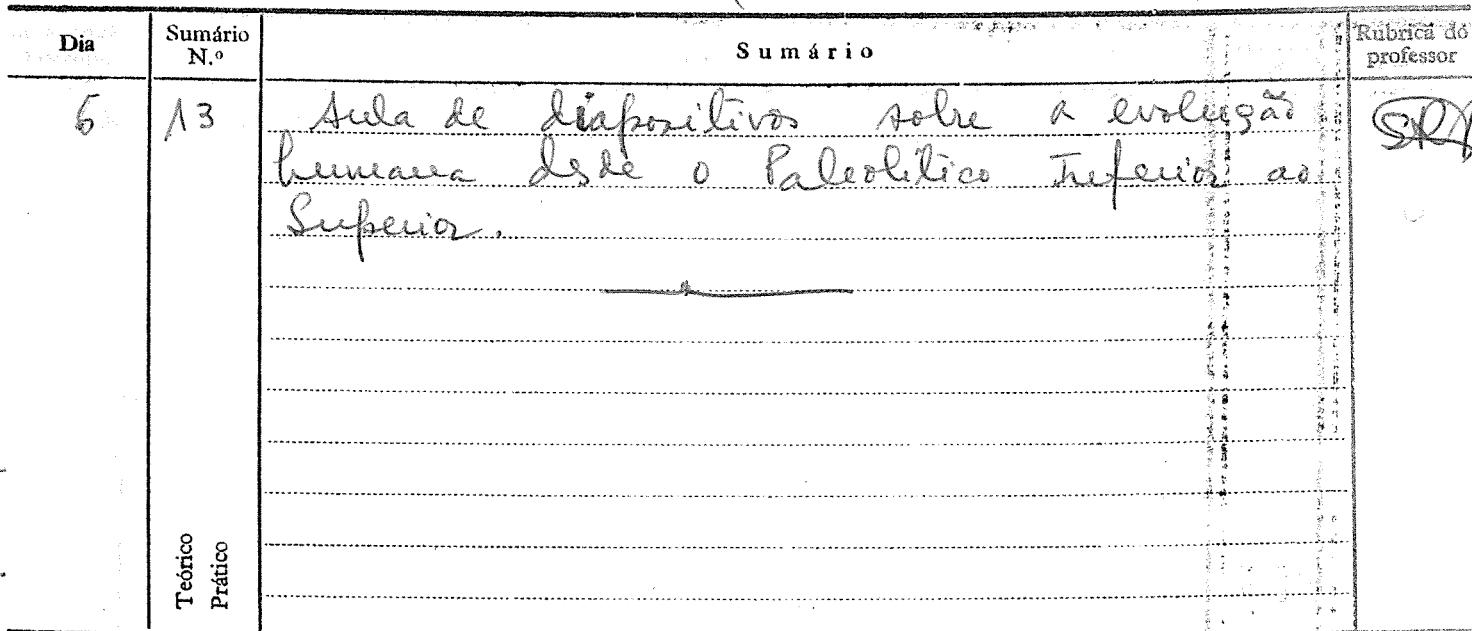 Dia Sumário N.º Sumário Rubrica do professor
13 Aula de diapositivos sobre a evolução
humana desde o Paleolítico Inferior ao
Superior.
Teórico
Prático